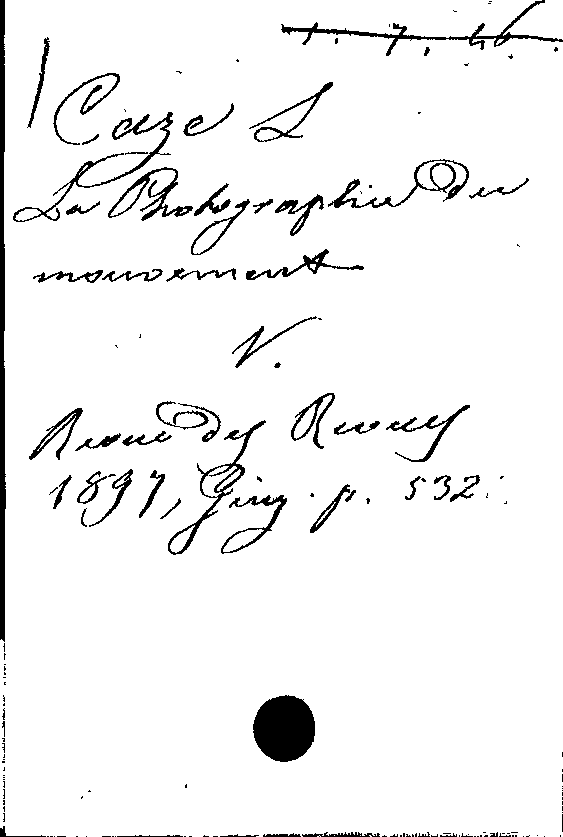 1. 7. 46.
Caze L
La Photographie du
mouvement
V.
Revue des Revues
1897, p. 532.